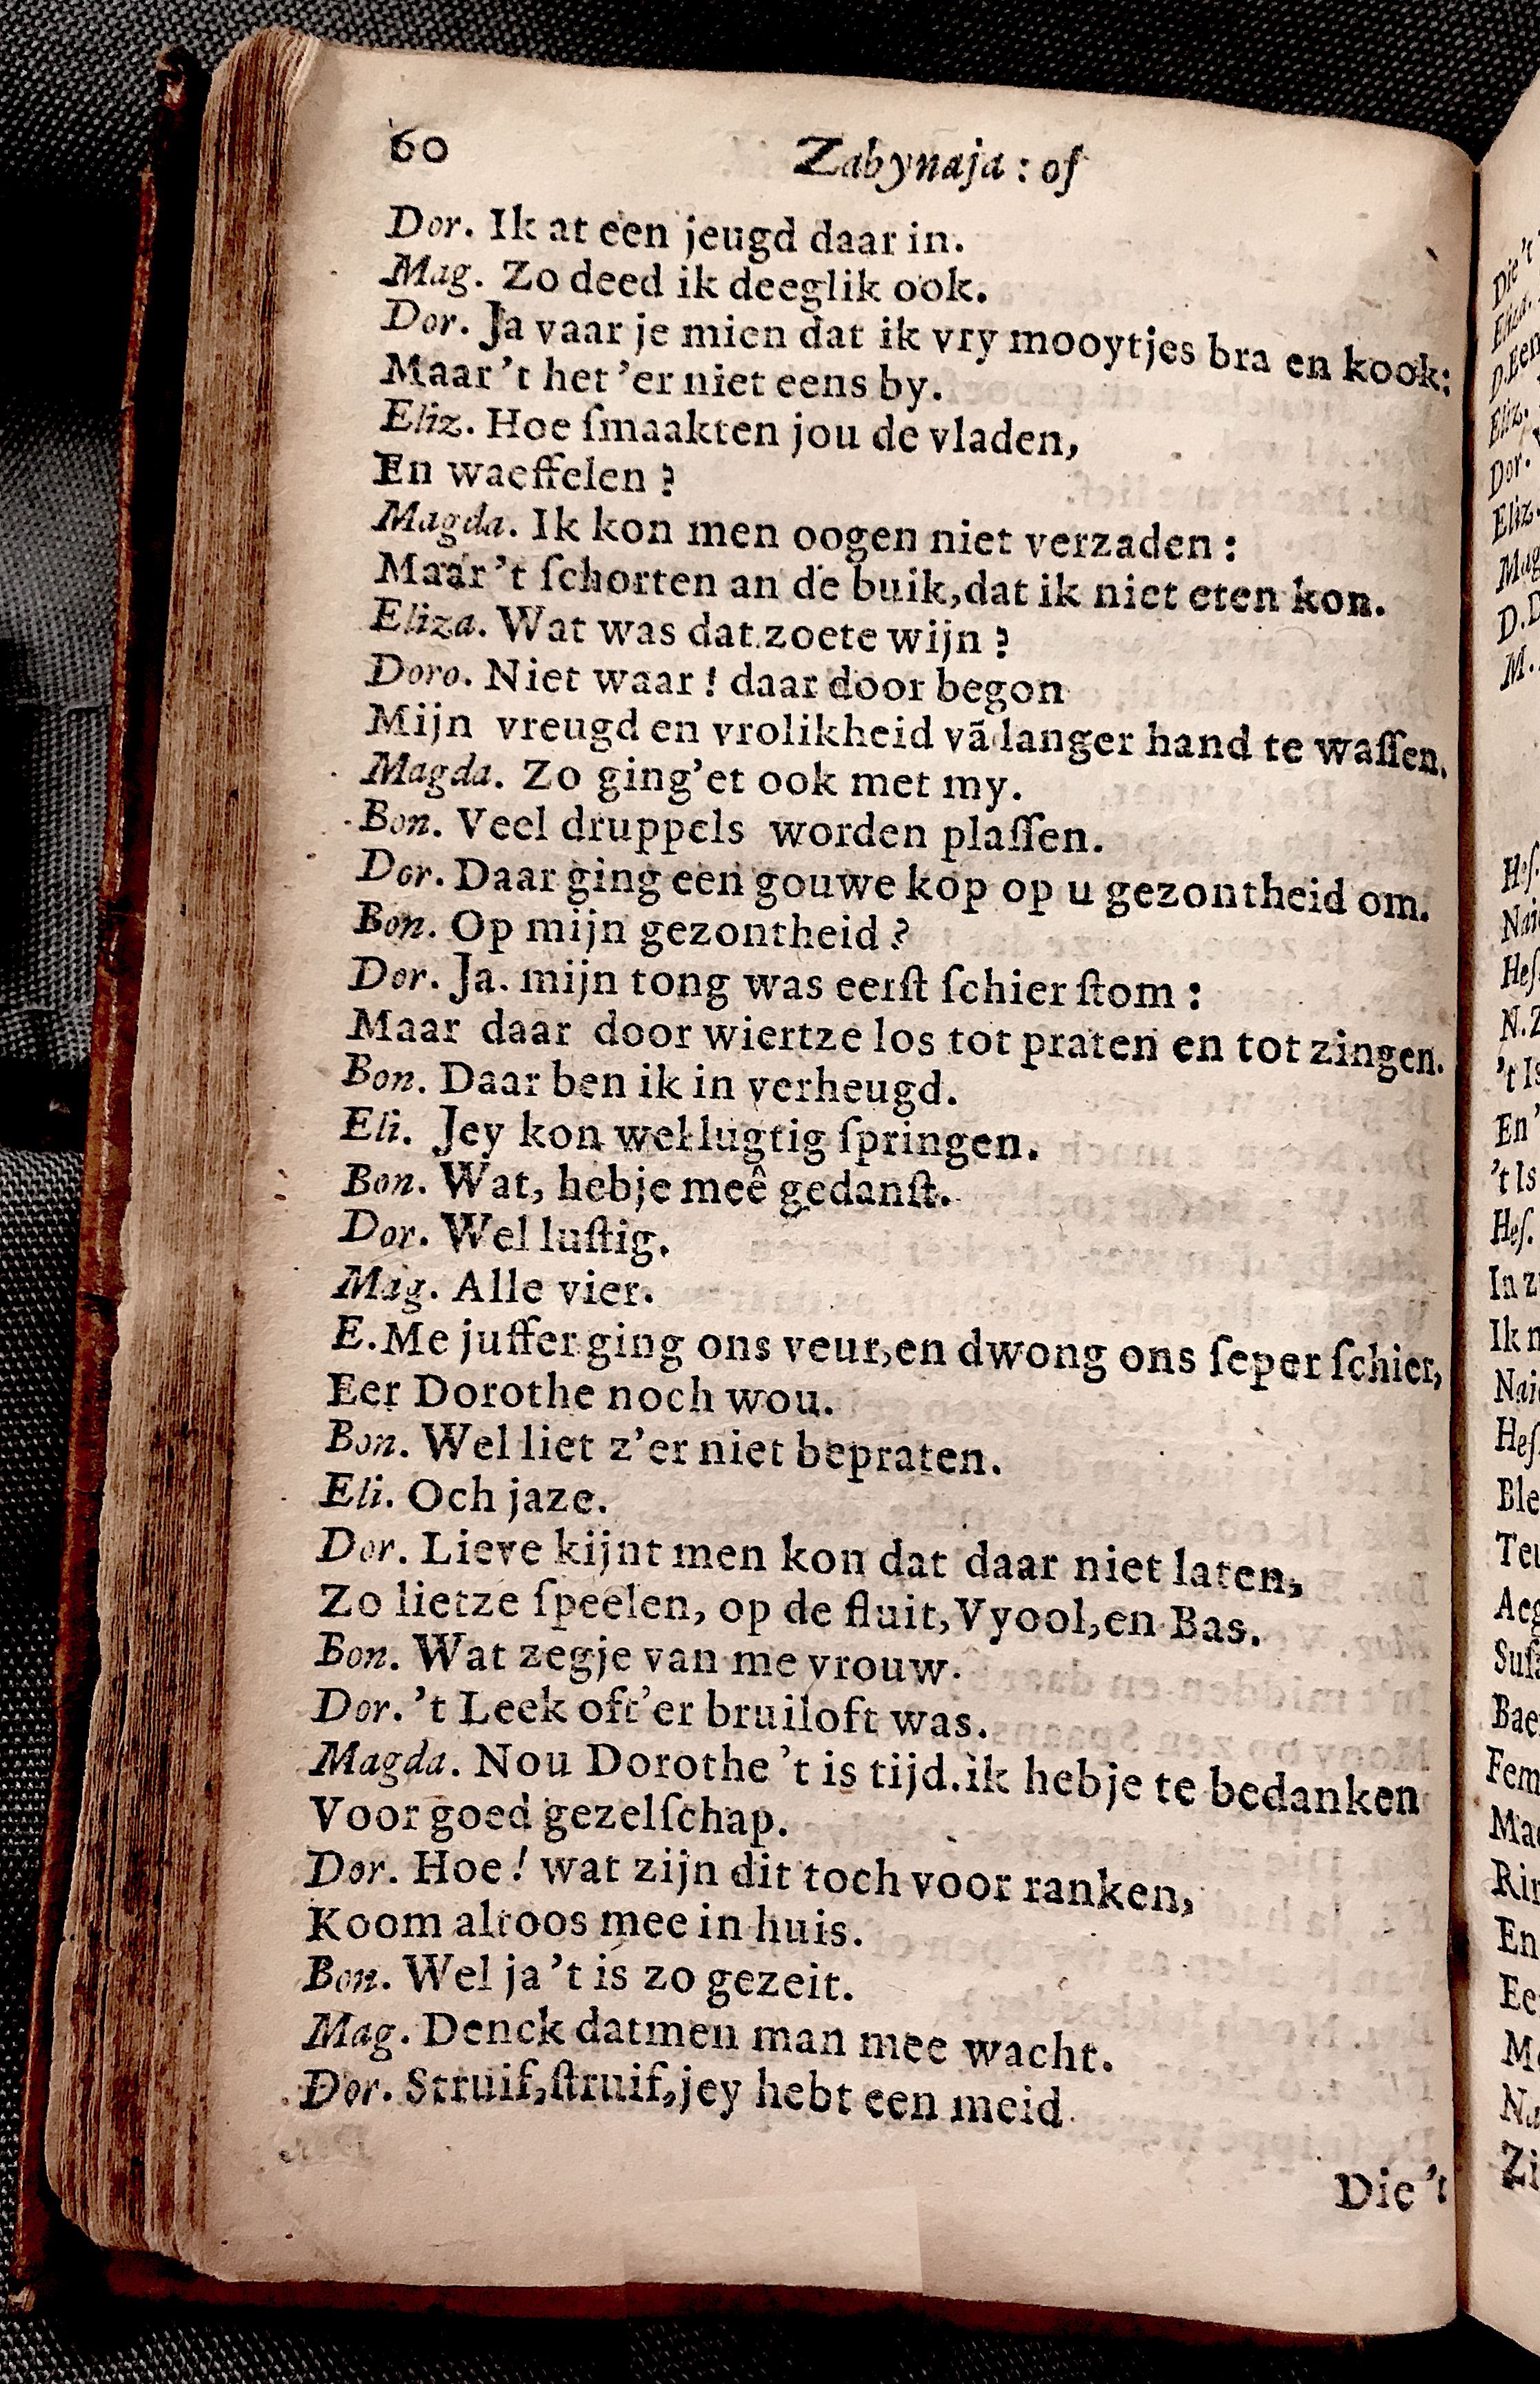 60
Zabynaja : of
Dor. Ik at een jeugd daar in.
Mag. Zo deed ik deeglik ook.
Dor. Ja vaar je mien dat ik vry mooytjes bra en kook:
Maar 't het 'er niet eens by.
Eliz. Hoe ſmaakten jou de vladen,
En waeffelen ?
Magda. Ik kon men oogen niet verzaden :
Maar 't ſchorten an de buik, dat ik niet eten kon.
Eliza. Wat was dat zoete wijn ?
Doro. Niet waar ! daar door begon
Mijn vreugd en vrolikheid vã langer hand te waſſen.
Magda. Zo ging'et ook met my.
Bon. Veel druppels worden plaſſen.
Dor. Daar ging een gouwe kop op u gezontheid om.
Bon. Op mijn gezontheid ?
Dor. Ja. mijn tong was eerſt ſchier ſtom :
Maar daar door wiertze los tot praten en tot zingen.
Bon. Daar ben ik in verheugd.
Eli. Jey kon wel lugtig ſpringen.
Bon. Wat, hebje meê gedanſt.
Dor. Wel luſtig.
Mag. Alle vier.
E. Me juffer ging ons veur, en dwong ons ſeper ſchier,
Eer Dorothe noch wou.
Bon. Wel liet z'er niet bepraten.
Eli. Och jaze.
Dor. Lieve kijnt men kon dat daar niet laten,
Zo lietze ſpeelen, op de fluit, Vyool, en Bas.
Bon. Wat zegje van me vrouw.
Dor. 't Leek oft'er bruiloft was.
Magda. Nou Dorothe 't is tijd. ik hebje te bedanken
Voor goed gezelſchap.
Dor. Hoe ! wat zijn dit toch voor ranken,
Koom altoos mee in huis.
Bon. Wel ja 't is zo gezeit.
Mag. Denck datmen man mee wacht.
Dor. Struif, ſtruif, jey hebt een meid
Die 't
Die 't
Eliza.
D. Een
Eliz.
Dor.
Eliz.
Mag
D. D
M.
Heſ.
Nai
Heſ.
N. Z
't Is
En'
't Is
Heſ.
In z
Ik n
Nai
Heſ
Ble
Teu
Aeg
Suſ
Bae
Fem
Ma
Rin
En
Ee
M
Na
Zi